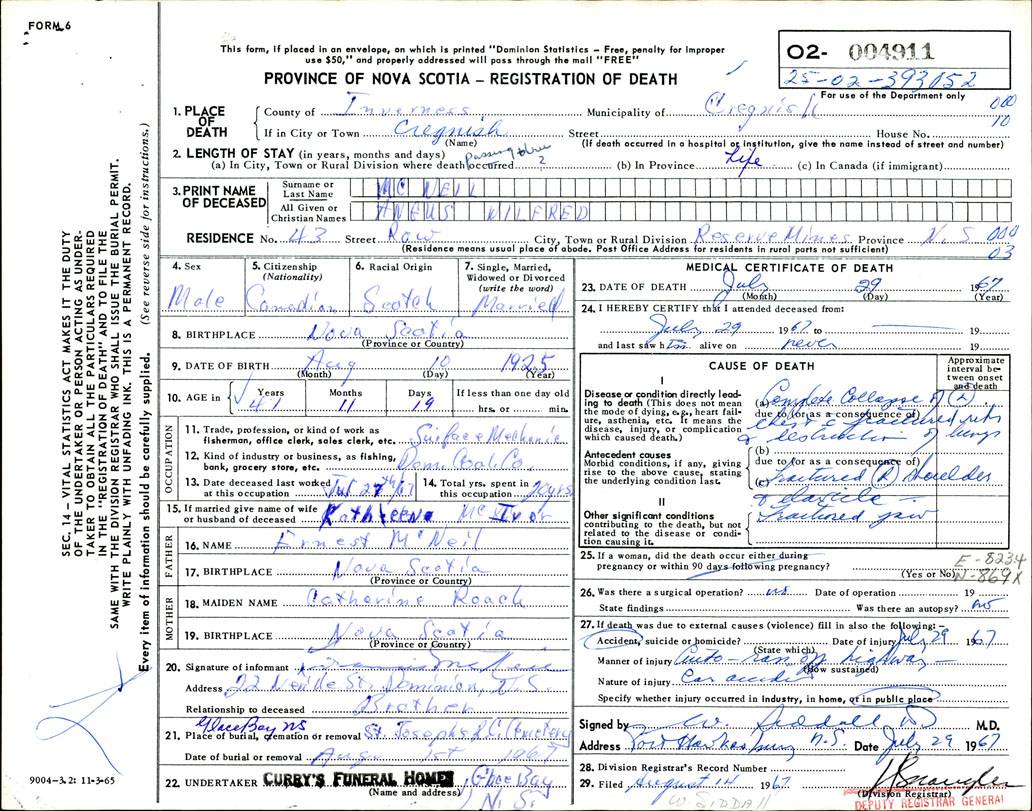 FORM 6
This form, if placed in an envelope, on which is printed "Dominion Statistics – Free, penalty for improper
use $50," and properly addressed will pass through the mail "FREE"
PROVINCE OF NOVA SCOTIA – REGISTRATION OF DEATH
O2- 004911
25-02-393052
For use of the Department only
000
10
1. PLACE OF DEATH
County of Inverness Municipality of Cregnish
If in City or Town Cregnish Street House No.
(Name) (If death occurred in a hospital or institution, give the name instead of street and number)
2. LENGTH OF STAY (in years, months and days)
(a) In City, Town or Rural Division where death occurred passing thru ? (b) In Province Life (c) In Canada (if immigrant)
3. PRINT NAME OF DECEASED
Surname or Last Name MC NEIL
All Given or Christian Names ANGUS WILFRED
RESIDENCE No. 43 Street Row City, Town or Rural Division Reserve Mines Province N.S 000
(Residence means usual place of abode. Post Office Address for residents in rural parts not sufficient) 03
4. Sex
Male
5. Citizenship (Nationality)
Canadian
6. Racial Origin
Scotch
7. Single, Married, Widowed or Divorced (write the word)
Married
8. BIRTHPLACE Nova Scotia
(Province or Country)
9. DATE OF BIRTH Aug 10 1925
(Month) (Day) (Year)
10. AGE in Years Months Days If less than one day old
41 11 19 hrs. or min.
OCCUPATION
11. Trade, profession, or kind of work as fisherman, office clerk, sales clerk, etc. Surface Mechanic
12. Kind of industry or business, as fishing, bank, grocery store, etc. Dom. Coal. Co.
13. Date deceased last worked at this occupation Jul 27th/67
14. Total yrs. spent in this occupation 20yrs
15. If married give name of wife or husband of deceased Kathleen Mc Ivor
FATHER
16. NAME Ernest McNeil
17. BIRTHPLACE Nova Scotia
(Province or Country)
MOTHER
18. MAIDEN NAME Catherine Roach
19. BIRTHPLACE Nova Scotia
(Province or Country)
20. Signature of informant
Address 22 St. Dominion, N.S
Relationship to deceased Brother
Glace Bay NS
21. Place of burial, cremation or removal St. Josephs R.C. Cemetery
Date of burial or removal Aug. 1st 1967
22. UNDERTAKER CURRY'S FUNERAL HOME Glace Bay
(Name and address) N.S.
MEDICAL CERTIFICATE OF DEATH
23. DATE OF DEATH July 29 1967
(Month) (Day) (Year)
24. I HEREBY CERTIFY that I attended deceased from:
July 29 1967 to 19
and last saw him alive on never 19
CAUSE OF DEATH
Approximate interval between onset and death
I
Disease or condition directly leading to death (This does not mean the mode of dying, e.g., heart failure, asthenia, etc. It means the disease, injury, or complication which caused death.)
(a) Complete Collapse of (L)
due to (or as a consequence of)
chest & fractured ribs
& destruction of lungs
Antecedent causes
Morbid conditions, if any, giving rise to the above cause, stating the underlying condition last.
(b)
due to (or as a consequence of)
(c) fractured (L) shoulder
& clavicle –
II
Other significant conditions contributing to the death, but not related to the disease or condition causing it.
fractured jaw
25. If a woman, did the death occur either during pregnancy or within 90 days following pregnancy?
(Yes or No)
E-8234
N-869X
26. Was there a surgical operation? no Date of operation 19
State findings Was there an autopsy? no
27. If death was due to external causes (violence) fill in also the following:–
Accident, suicide or homicide? Date of injury July 29 1967
(State which)
Manner of injury Auto-ran off highway –
(How sustained)
Nature of injury Car accident
Specify whether injury occurred in industry, in home, or in public place
Signed by W. Siddall M.D.
Address Port Hawkesbury N.S. Date July 29 1967
28. Division Registrar's Record Number
29. Filed August 14 1967
(Division Registrar)
W. SIDDALL
DEPUTY REGISTRAR GENERAL
SEC. 14 – VITAL STATISTICS ACT MAKES IT THE DUTY
OF THE UNDERTAKER OR PERSON ACTING AS UNDER-
TAKER TO OBTAIN ALL THE PARTICULARS REQUIRED
IN THE "REGISTRATION OF DEATH" AND TO FILE THE
SAME WITH THE DIVISION REGISTRAR WHO SHALL ISSUE THE BURIAL PERMIT.
WRITE PLAINLY WITH UNFADING INK. THIS IS A PERMANENT RECORD.
Every item of information should be carefully supplied. (See reverse side for instructions.)
9004-3.2: 11-3-65